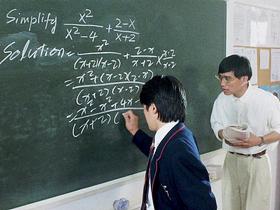 Simplify x²/(x²-4) + (2-x)/(x+2)
Solution = x²/((x+2)(x-2)) + (2-x)/(x+2) · (x-2)/(x-2)
= (x²+(x-2)(2-x))/((x+2)(x-2))
= (x²-x²+4x-)/((x+2)(